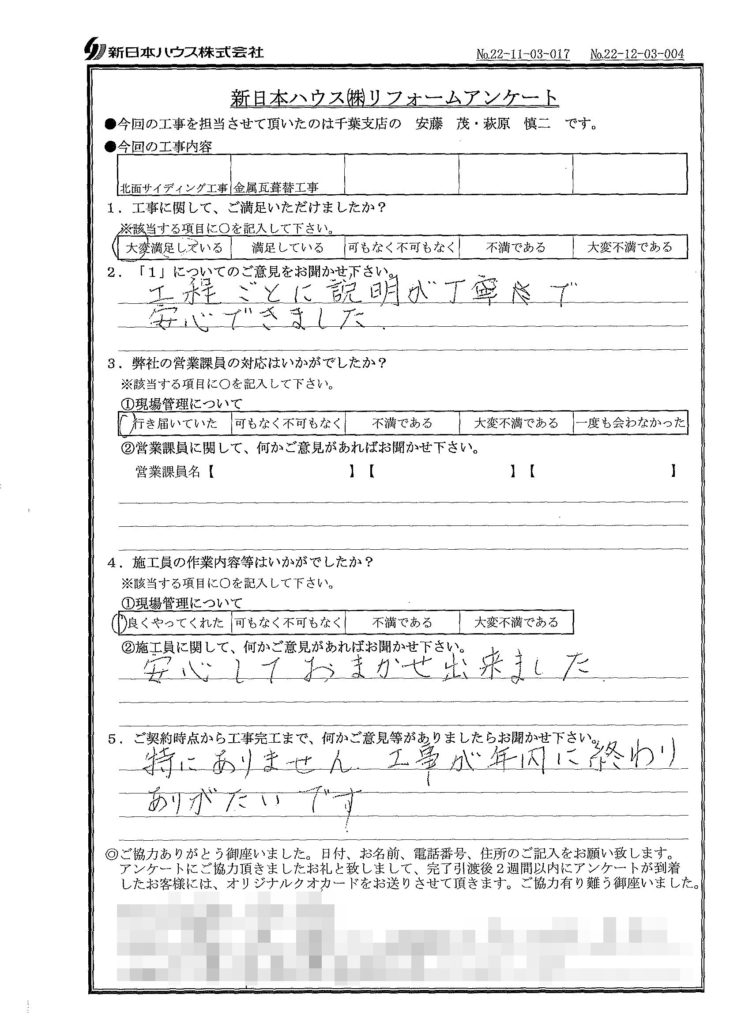 新日本ハウス株式会社
№22-11-03-017 №22-12-03-004
新日本ハウス㈱リフォームアンケート
●今回の工事を担当させて頂いたのは千葉支店の 安藤 茂・萩原 慎二 です。
●今回の工事内容
北面サイディング工事 金属瓦葺替工事
1．工事に関して、ご満足いただけましたか？
※該当する項目に○を記入して下さい。
大変満足している 満足している 可もなく不可もなく 不満である 大変不満である
2．「1」についてのご意見をお聞かせ下さい。
工程ごとに説明が丁寧で
安心できました.
3．弊社の営業課員の対応はいかがでしたか？
※該当する項目に○を記入して下さい。
①現場管理について
行き届いていた 可もなく不可もなく 不満である 大変不満である 一度も会わなかった
②営業課員に関して、何かご意見があればお聞かせ下さい。
営業課員名【 】【 】【 】
4．施工員の作業内容等はいかがでしたか？
※該当する項目に○を記入して下さい。
①現場管理について
良くやってくれた 可もなく不可もなく 不満である 大変不満である
②施工員に関して、何かご意見があればお聞かせ下さい。
安心しておまかせ出来ました.
5．ご契約時点から工事完工まで、何かご意見等がありましたらお聞かせ下さい。
特にありません. 工事が年内に終わり
ありがたいです
◎ご協力ありがとう御座いました。日付、お名前、電話番号、住所のご記入をお願い致します。
アンケートにご協力頂きましたお礼と致しまして、完了引渡後2週間以内にアンケートが到着
したお客様には、オリジナルクオカードをお送りさせて頂きます。ご協力有り難う御座いました。